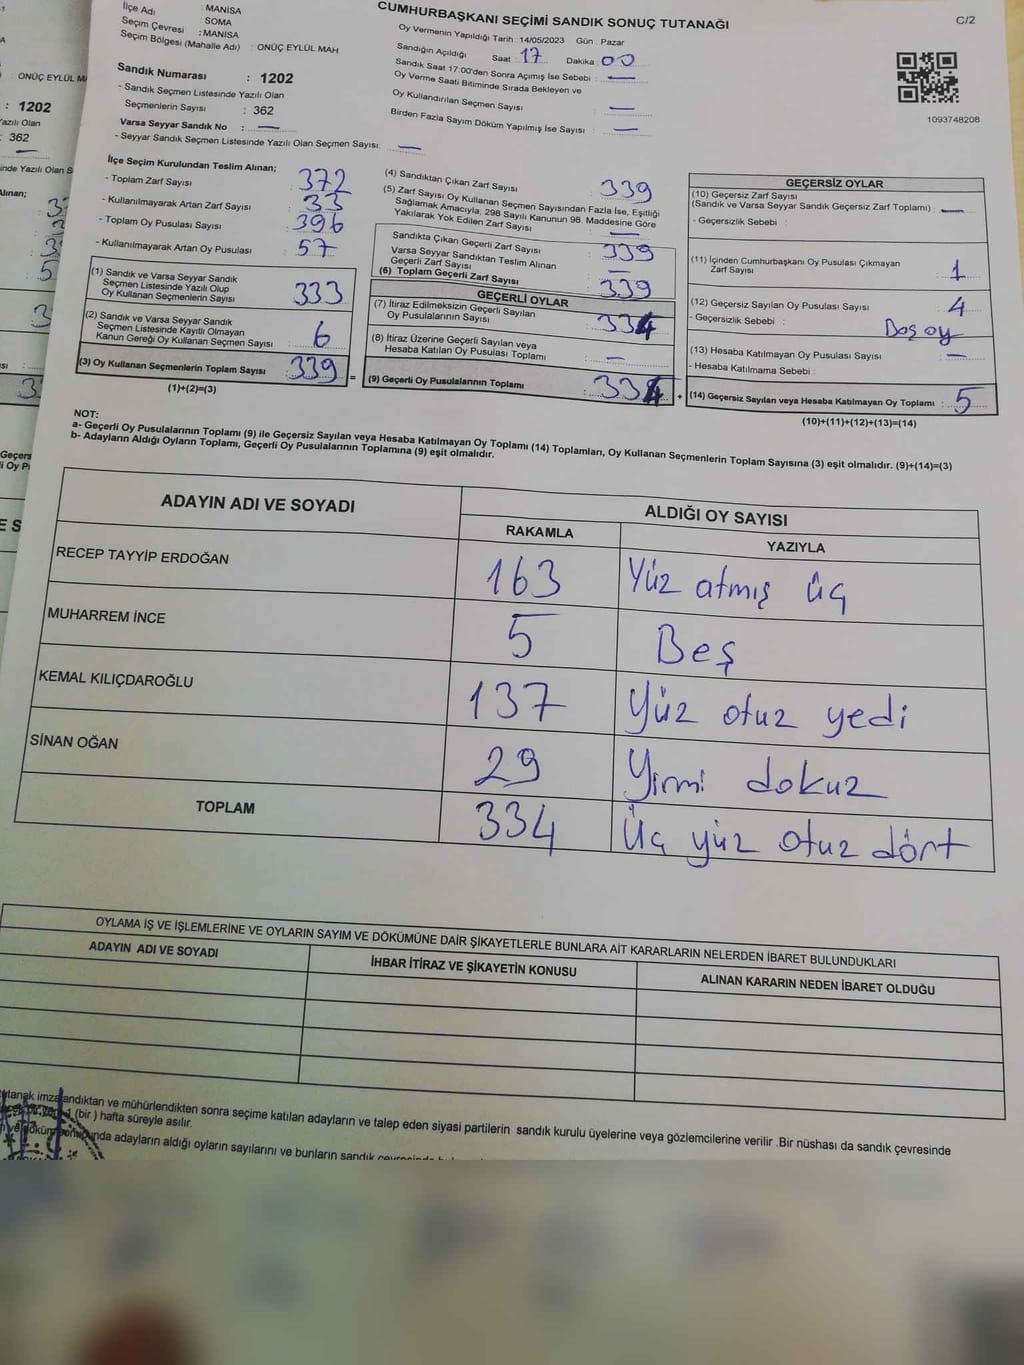 CUMHURBAŞKANI SEÇİMİ SANDIK SONUÇ TUTANAĞI
C/2
İlçe Adı : MANİSA
Seçim Çevresi : SOMA
: MANİSA
Seçim Bölgesi (Mahalle Adı) : ONÜÇ EYLÜL MAH
Sandık Numarası : 1202
- Sandık Seçmen Listesinde Yazılı Olan
Seçmenlerin Sayısı : 362
Varsa Seyyar Sandık No : —
- Seyyar Sandık Seçmen Listesinde Yazılı Olan Seçmen Sayısı: —
Oy Vermenin Yapıldığı Tarih : 14/05/2023 Gün : Pazar
Sandığın Açıldığı Saat : 17 Dakika : 00
Sandık Saat 17:00'den Sonra Açımış İse Sebebi : —
Oy Verme Saati Bitiminde Sırada Bekleyen ve
Oy Kullandırılan Seçmen Sayısı : —
Birden Fazla Sayım Döküm Yapılmış İse Sayısı : —
1093748208
İlçe Seçim Kurulundan Teslim Alınan;
- Toplam Zarf Sayısı : 372
- Kullanılmayarak Artan Zarf Sayısı : 33
- Toplam Oy Pusulası Sayısı : 396
- Kullanılmayarak Artan Oy Pusulası : 57
(1) Sandık ve Varsa Seyyar Sandık
Seçmen Listesinde Yazılı Olup
Oy Kullanan Seçmenlerin Sayısı : 333
(2) Sandık ve Varsa Seyyar Sandık
Seçmen Listesinde Kayıtlı Olmayan
Kanun Gereği Oy Kullanan Seçmen Sayısı : 6
(3) Oy Kullanan Seçmenlerin Toplam Sayısı : 339
(1)+(2)=(3)
(4) Sandıktan Çıkan Zarf Sayısı : 339
(5) Zarf Sayısı Oy Kullanan Seçmen Sayısından Fazla İse, Eşitliği
Sağlamak Amacıyla; 298 Sayılı Kanunun 98. Maddesine Göre
Yakılarak Yok Edilen Zarf Sayısı : —
Sandıkta Çıkan Geçerli Zarf Sayısı : 339
Varsa Seyyar Sandıktan Teslim Alınan
Geçerli Zarf Sayısı : —
(6) Toplam Geçerli Zarf Sayısı : 339
GEÇERLİ OYLAR
(7) İtiraz Edilmeksizin Geçerli Sayılan
Oy Pusulalarının Sayısı : 334
(8) İtiraz Üzerine Geçerli Sayılan veya
Hesaba Katılan Oy Pusulası Toplamı : —
(9) Geçerli Oy Pusulalarının Toplamı : 334
GEÇERSİZ OYLAR
(10) Geçersiz Zarf Sayısı
(Sandık ve Varsa Seyyar Sandık Geçersiz Zarf Toplamı) : —
- Geçersizlik Sebebi :
(11) İçinden Cumhurbaşkanı Oy Pusulası Çıkmayan
Zarf Sayısı : 1
(12) Geçersiz Sayılan Oy Pusulası Sayısı : 4
- Geçersizlik Sebebi : Boş oy
(13) Hesaba Katılmayan Oy Pusulası Sayısı : —
- Hesaba Katılmama Sebebi :
(14) Geçersiz Sayılan veya Hesaba Katılmayan Oy Toplamı : 5
(10)+(11)+(12)+(13)=(14)
NOT:
a- Geçerli Oy Pusulalarının Toplamı (9) ile Geçersiz Sayılan veya Hesaba Katılmayan Oy Toplamı (14) Toplamları, Oy Kullanan Seçmenlerin Toplam Sayısına (3) eşit olmalıdır. (9)+(14)=(3)
b- Adayların Aldığı Oyların Toplamı, Geçerli Oy Pusulalarının Toplamına (9) eşit olmalıdır.
ADAYIN ADI VE SOYADI ALDIĞI OY SAYISI
RAKAMLA YAZIYLA
RECEP TAYYİP ERDOĞAN 163 Yüz atmış üç
MUHARREM İNCE 5 Beş
KEMAL KILIÇDAROĞLU 137 Yüz otuz yedi
SİNAN OĞAN 29 Yirmi dokuz
TOPLAM 334 Üç yüz otuz dört
OYLAMA İŞ VE İŞLEMLERİNE VE OYLARIN SAYIM VE DÖKÜMÜNE DAİR ŞİKAYETLERLE BUNLARA AİT KARARLARIN NELERDEN İBARET BULUNDUKLARI
ADAYIN ADI VE SOYADI İHBAR İTİRAZ VE ŞİKAYETİN KONUSU ALINAN KARARIN NEDEN İBARET OLDUĞU
tanak imzalandıktan ve mühürlendikten sonra seçime katılan adayların ve talep eden siyasi partilerin sandık kurulu üyelerine veya gözlemcilerine verilir .Bir nüshası da sandık çevresinde
(bir ) hafta süreyle asılır.
adayların aldığı oyların sayılarını ve bunların sandık